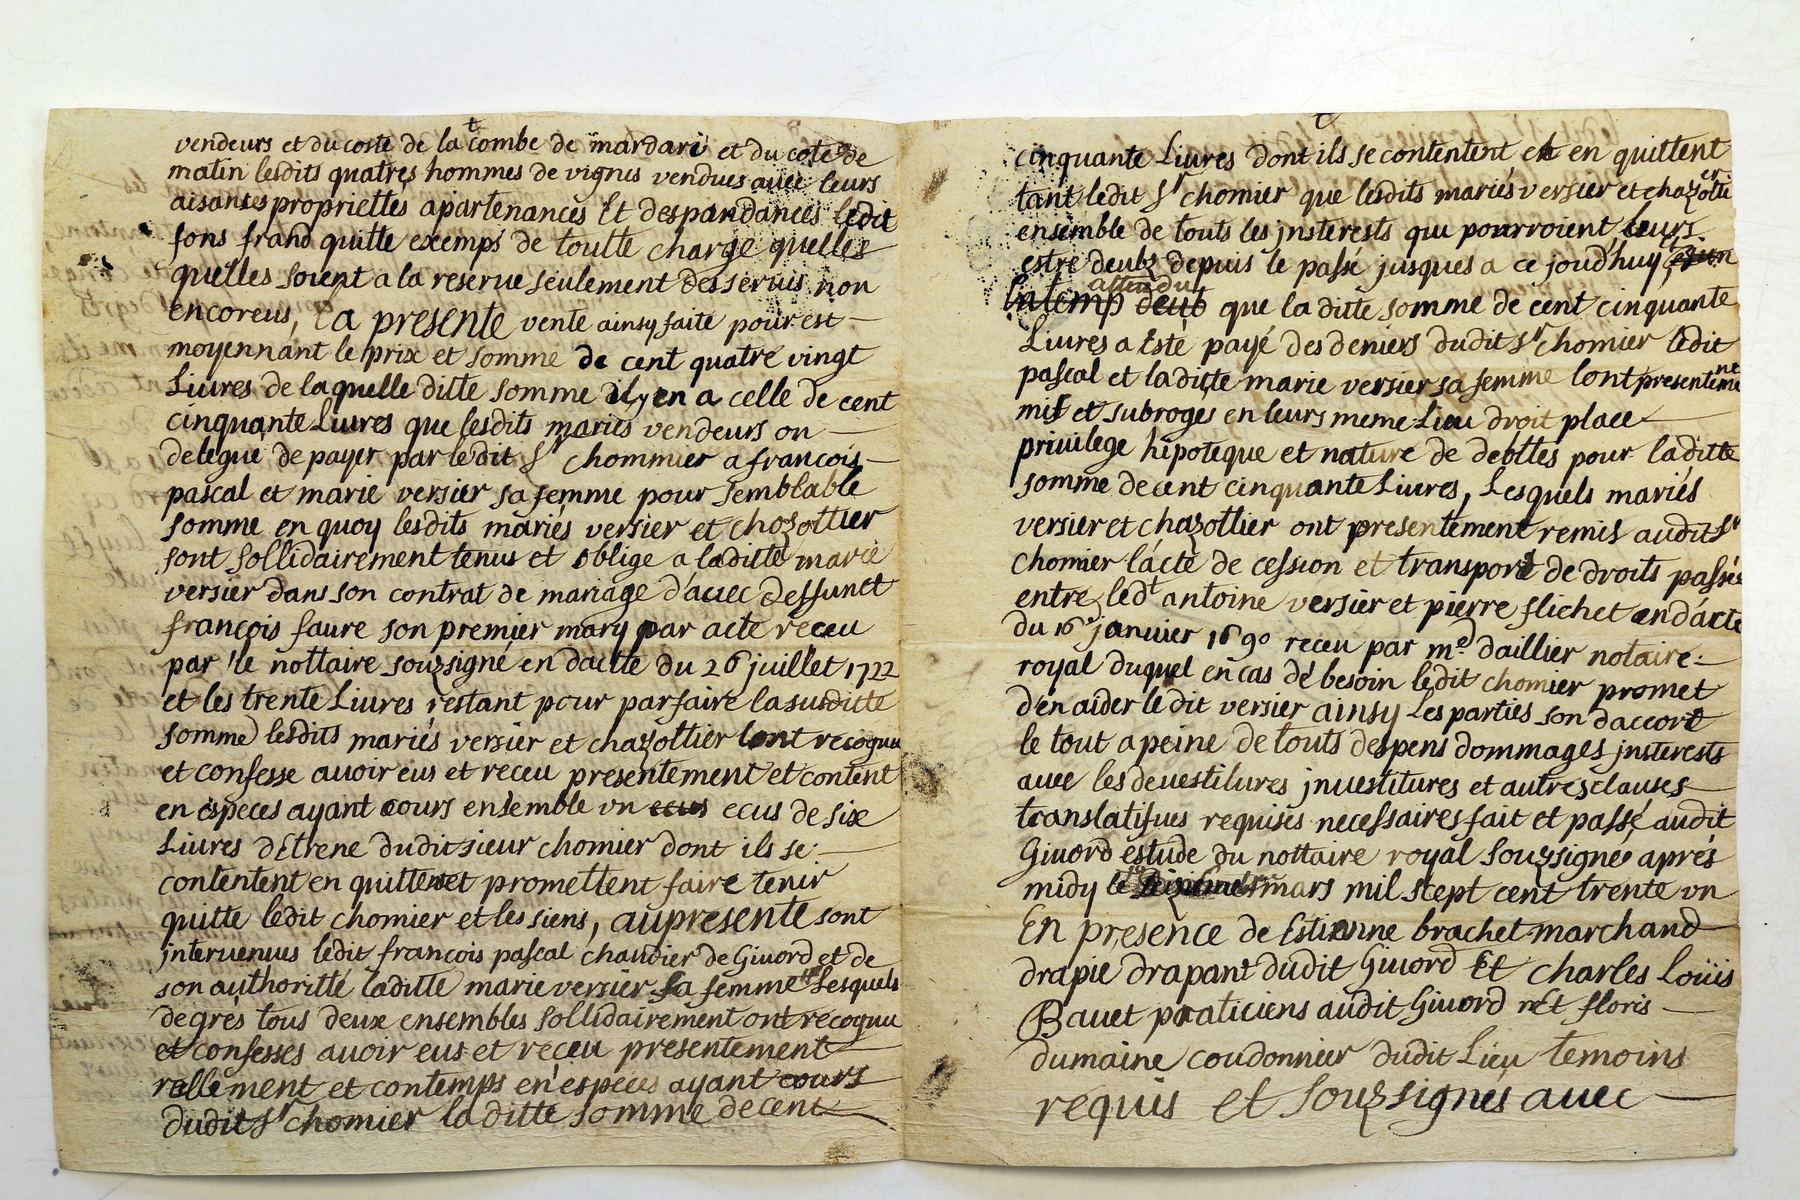 vendeurs et du costé de la combe de mardari et du coté de
matin lesdits quatres hommes de vignes vendues avec leurs
aisances propriettes apartenances Et despandances ledit
fons franc quitte exemps de toutte charge quelles
quelles soient a la reserve seulement des servis non
encoreus, La presente vente ainsy faite pour est
moyennant le prix et somme de cent quatre vingt
Livres de laquelle ditte somme il y en a celle de cent
cinquante Livres que lesdits mariés vendeurs on
delegué de payer par ledit Sr chommier a françois
pascal et marie versier sa femme pour semblable
somme en quoy lesdits mariés versier et chozottier
sont sollidairement tenus et oblige a laditte marie
versier dans son contrat de mariage d'avec deffunct
françois faure son premier mary par acte receu
par le nottaire souzsigné en dactte du 26 juillet 1722
et les trente Livres restant pour parfaire la susditte
somme lesdits mariés versier et chazottier lont recognu
et confesse avoir eus et receu presentement et content
en especes ayant cours ensemble vn ecus ecus de six
Livres détrene dudit sieur chomier dont ils se
contentent en quittent et promettent faire tenir
quitte ledit chomier et les siens, au presente sont
intervenus ledit françois pascal chandier de Givord et de
son authoritté laditte marie versier sa femme Lesquels
degrés tous deux ensembles sollidairement ont recognu
et confesses avoir eus et receu presentement
rellement et contemps en especes ayant cours
dudit Sr chomier la ditte somme de cent
cinquante Livres dont ils se contentent et en quittent
tant ledit Sr chomier que lesdits mariés versier et chazottier
ensemble de touts les jnsterests qui pourroient leurs
estre deubz depuis le passé jusques a ce joud'huy
attendu
deub que la ditte somme de cent cinquante
Livres a Esté payé des deniers dudit Sr chomier ledit
pascal et laditte marie versier sa femme lont presentemnt
mis et subroges en leurs meme Lieu droit place
privilege hipoteque et nature de debttes pour laditte
somme de cent cinquante Livres, Lesquels mariés
versier et chazottier ont presentement remis audit Sr
chomier lácte de cession et transport de droits passés
entre ledt antoine versier et pierre flichet en dácte
du 16e janvier 1690 receu par me daillier notaire
royal duquel en cas dé besoin ledit chomier promet
d'en aider le dit versier ainsy Les parties son daccort
le tout a peine de touts despens dommages jnsterests
avec les devestitures jnvestitures et autres clauses
translatifves requises necessaires fait et passé audit
Givord estude du nottaire royal souzsigné aprés
midy le mars mil stept cent trente vn
En presence de Estienne brachet marchand
drapié drapant dudit Givord Et charles Loüis
Bavet praticiens audit Givord net floris
dumaine coudonnier dudit Lieu temoins
requis et souzsignés avec